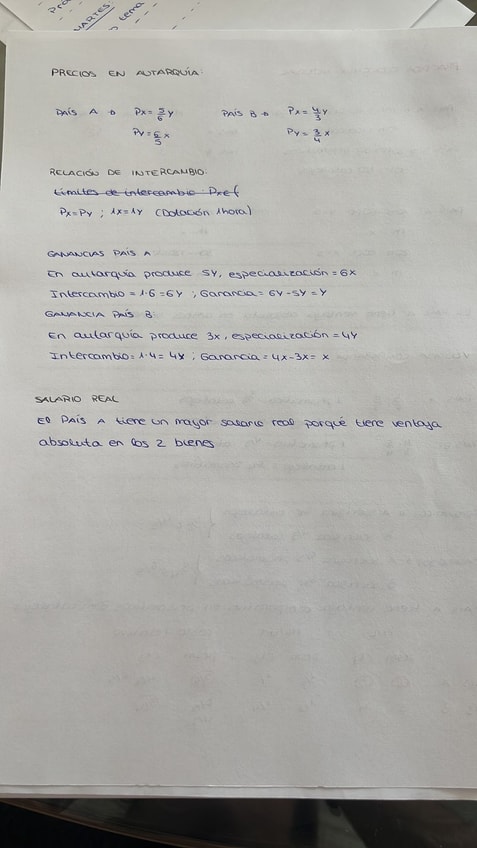 MARTES
tema
PRECIOS EN AUTARQUÍA:
PAÍS A → Px = 5/6 Y PAÍS B → Px = 4/3 Y
Py = 6/5 X Py = 3/4 X
RELACIÓN DE INTERCAMBIO:
Límites de intercambio: Pxef
Px = Py ; 1x = 1y (Dotación 1 hora)
GANANCIAS PAÍS A
En autarquía produce 5Y, especialización = 6X
Intercambio = 1·6 = 6Y ; Ganancia = 6Y - 5Y = Y
GANANCIA PAÍS B:
En autarquía produce 3x, especialización = 4Y
Intercambio = 1·4 = 4X ; Ganancia = 4x - 3x = x
SALARIO REAL
El PAÍS A tiene un mayor salario real porqué tiene ventaja
absoluta en los 2 bienes